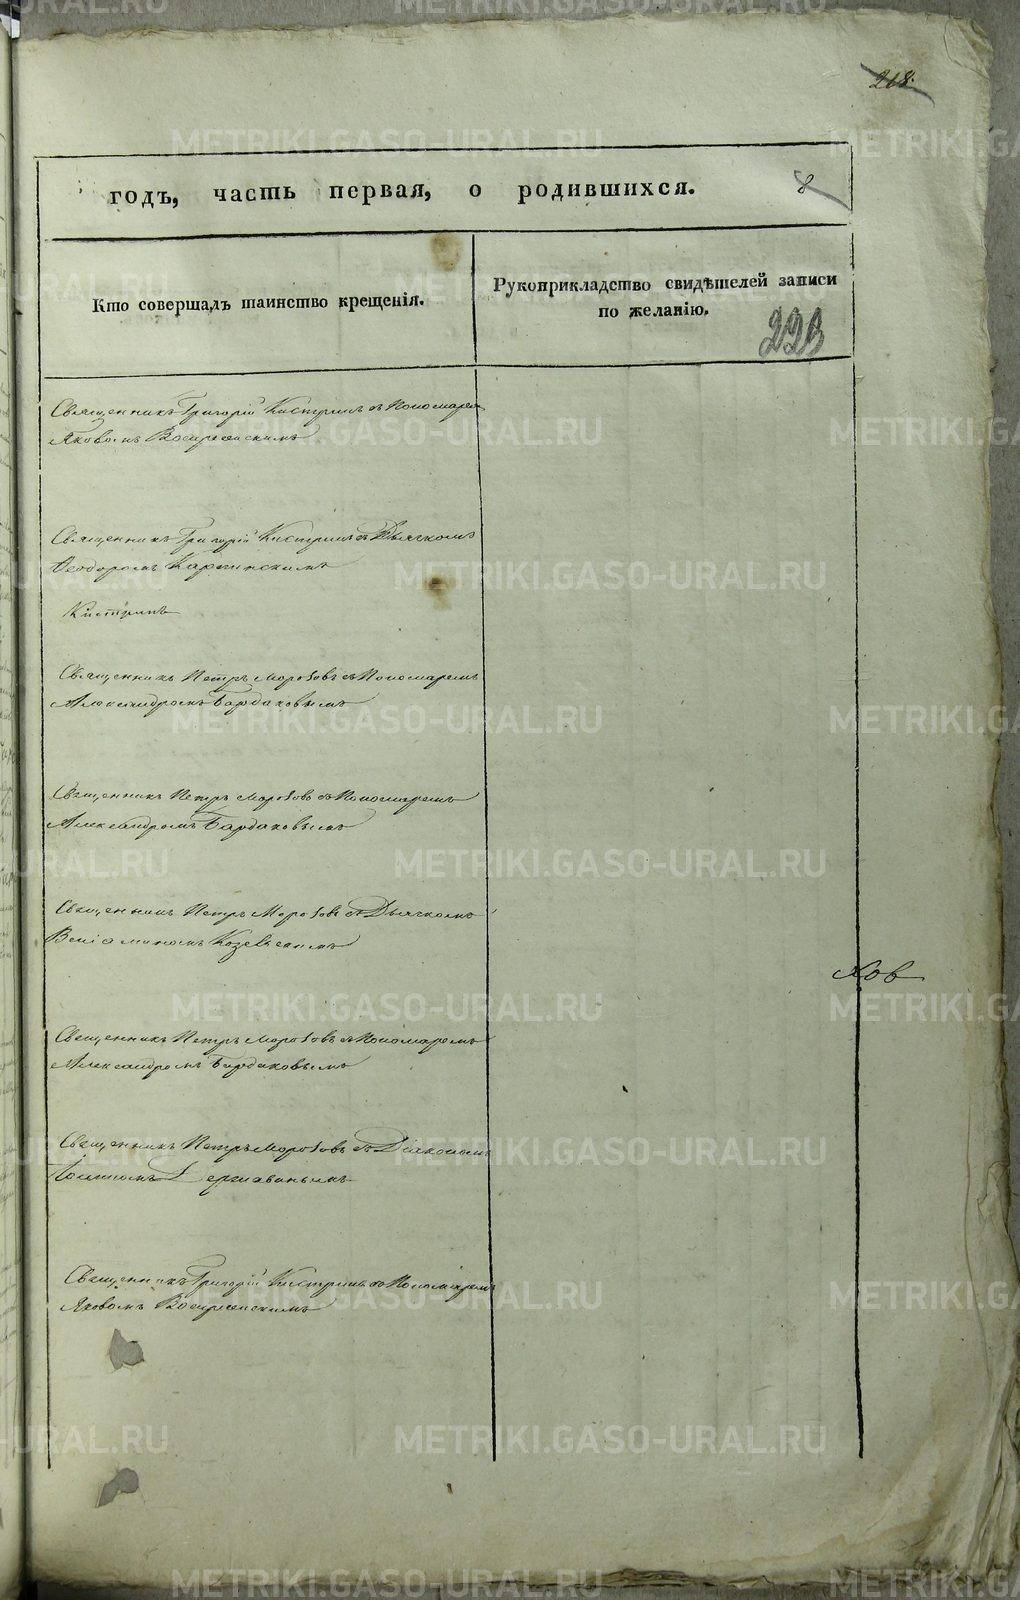 218.
годъ, часть первая, о родившихся.
8
Кто совершалъ таинство крещенія.
Рукоприкладство свидѣтелей записи
по желанію.
223
Священникъ Григорій Кистринъ съ Пономарем
Яковомъ Воскресенскимъ
Священникъ Григорій Кистринъ съ Дьячкомъ
Ѳеодоромъ Каргинскимъ
Кистринъ
Священникъ Петръ Морозовъ съ Пономаремъ
Александромъ Бардаковымъ
Священникъ Петръ Морозовъ съ Пономаремъ
Александромъ Бардаковымъ
Священникъ Петръ Морозовъ съ Дьячкомъ
Веніаминомъ
Священникъ Петръ Морозовъ съ Пономаремъ
Александромъ Бардаковымъ
Священникъ Петръ Морозовъ съ Діакономъ
Іоанномъ Державинымъ
Священникъ Григорій Кистринъ съ Пономаремъ
Яковомъ Воскресенскимъ
ков
METRIKI.GASO-URAL.RU